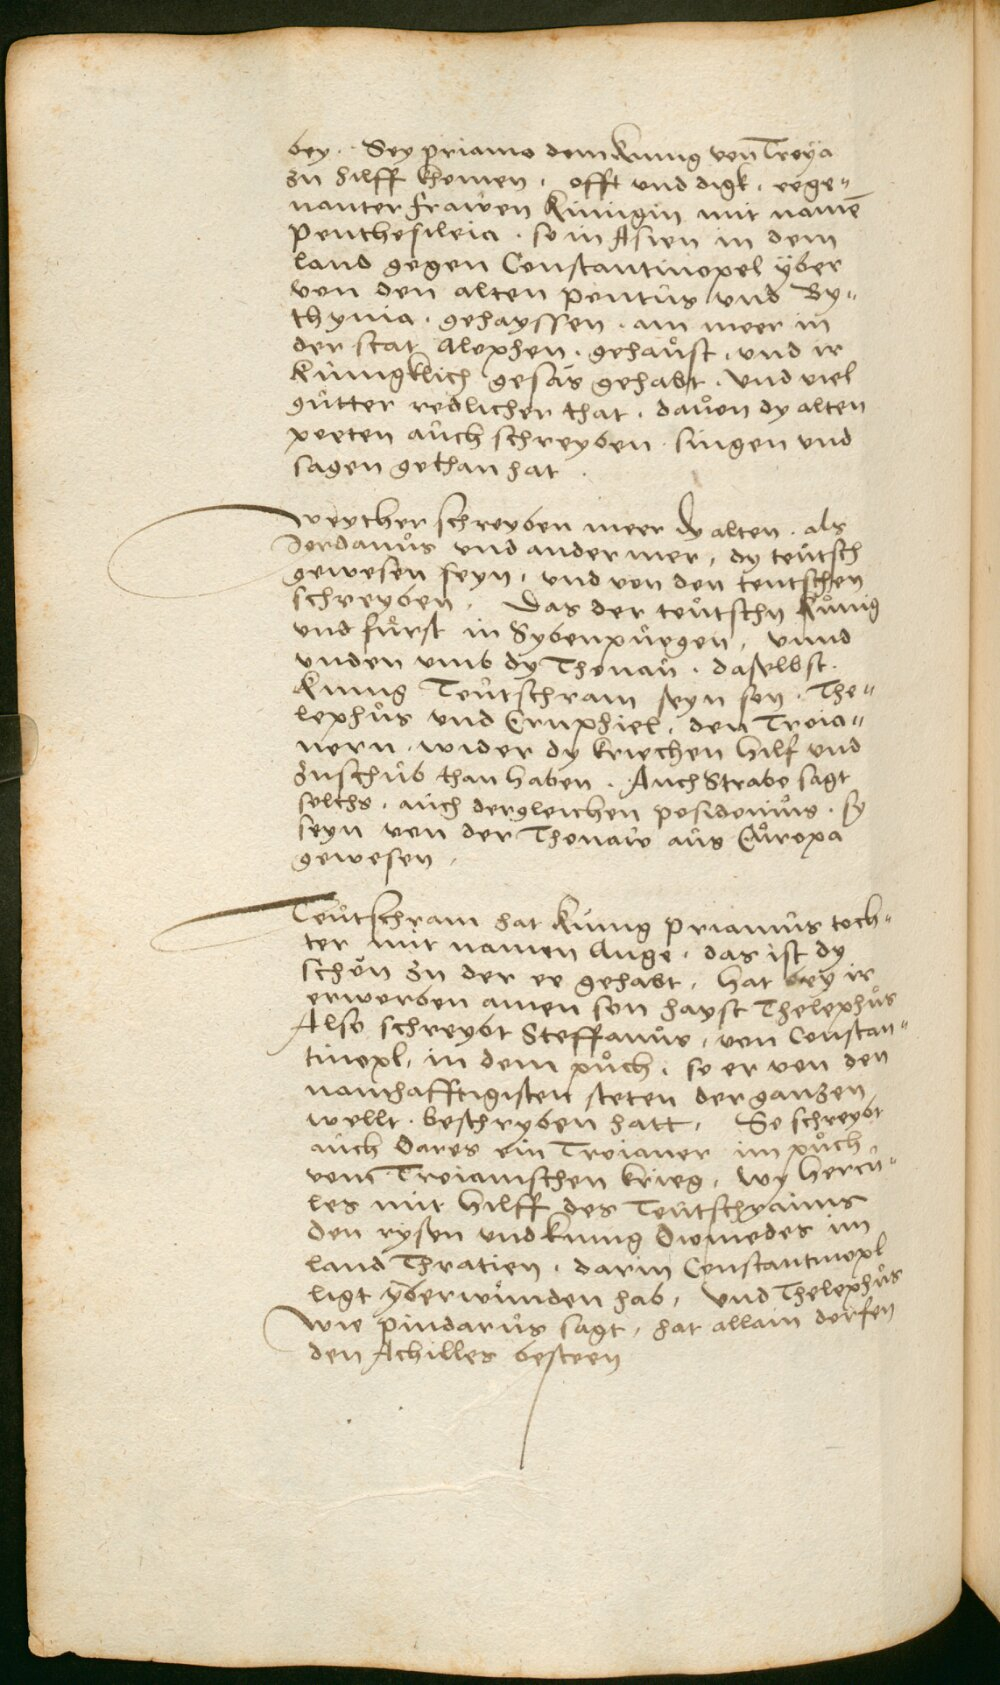 bey. Sey priamo dem Kunig von Troya
zu hilff khomen, offt und digk, eege„
nanter frawen Künigin mit namē
Penthesileia. so in Asien in dem
land gegen Constantinopel yber
von den alten pontus und By„
thynia. gehayssen. am meer in
der stat Alophen. gehaŭst, und ir
künigklich gesäs gehabt. und viel
gŭtter redlicher that. davon dy alten
poeten aŭch schreyben. singen und
sagen gethan hat.
Weyther schreyben meer dy alten. als
Jordanŭs und ander mer, dy teŭtsch
gewesen seyn, und von den teutschen
schreyben. Das der teŭtschn Kŭnig
und fürst in Sybenpŭrgen, unnd
unden umb dy Thonaŭ. daselbst.
Kunig Teŭtschram seyn son. The„
lephŭs und Eruphiel. den Troia„
nern. wider dy kriechen hilf und
zuschŭb than haben. Auch Strabo sagt
solchs. aŭch dergleichen posidoniŭs. sy
seyn von der Thonaw aŭs Eŭropa
gewesen.
Teŭtschram hat Kŭnig priamŭs toch„
ter mit namen Auge. das ist dy
schön zu der ee gehabt, hat bey ir
erworben ainen son hayst Thelephŭs
Also schreybt Steffanŭs, von Constan„
tinopl, in dem pŭch, so er von den
namhafftigisten steten der ganzen
wellt. beschryben hatt, So schreybt
aŭch Dares ein Troianer im pŭch
vom Troianischen krieg, wy hercŭ„
les mit hilff des Teŭtschrams
den rysen und kunig Diomedes im
land Thratien. darin Constantinopl
ligt yberwŭnden hab, und Thelephŭs
wie pindarŭs sagt, hat allain dörfen
den Achilles besteen